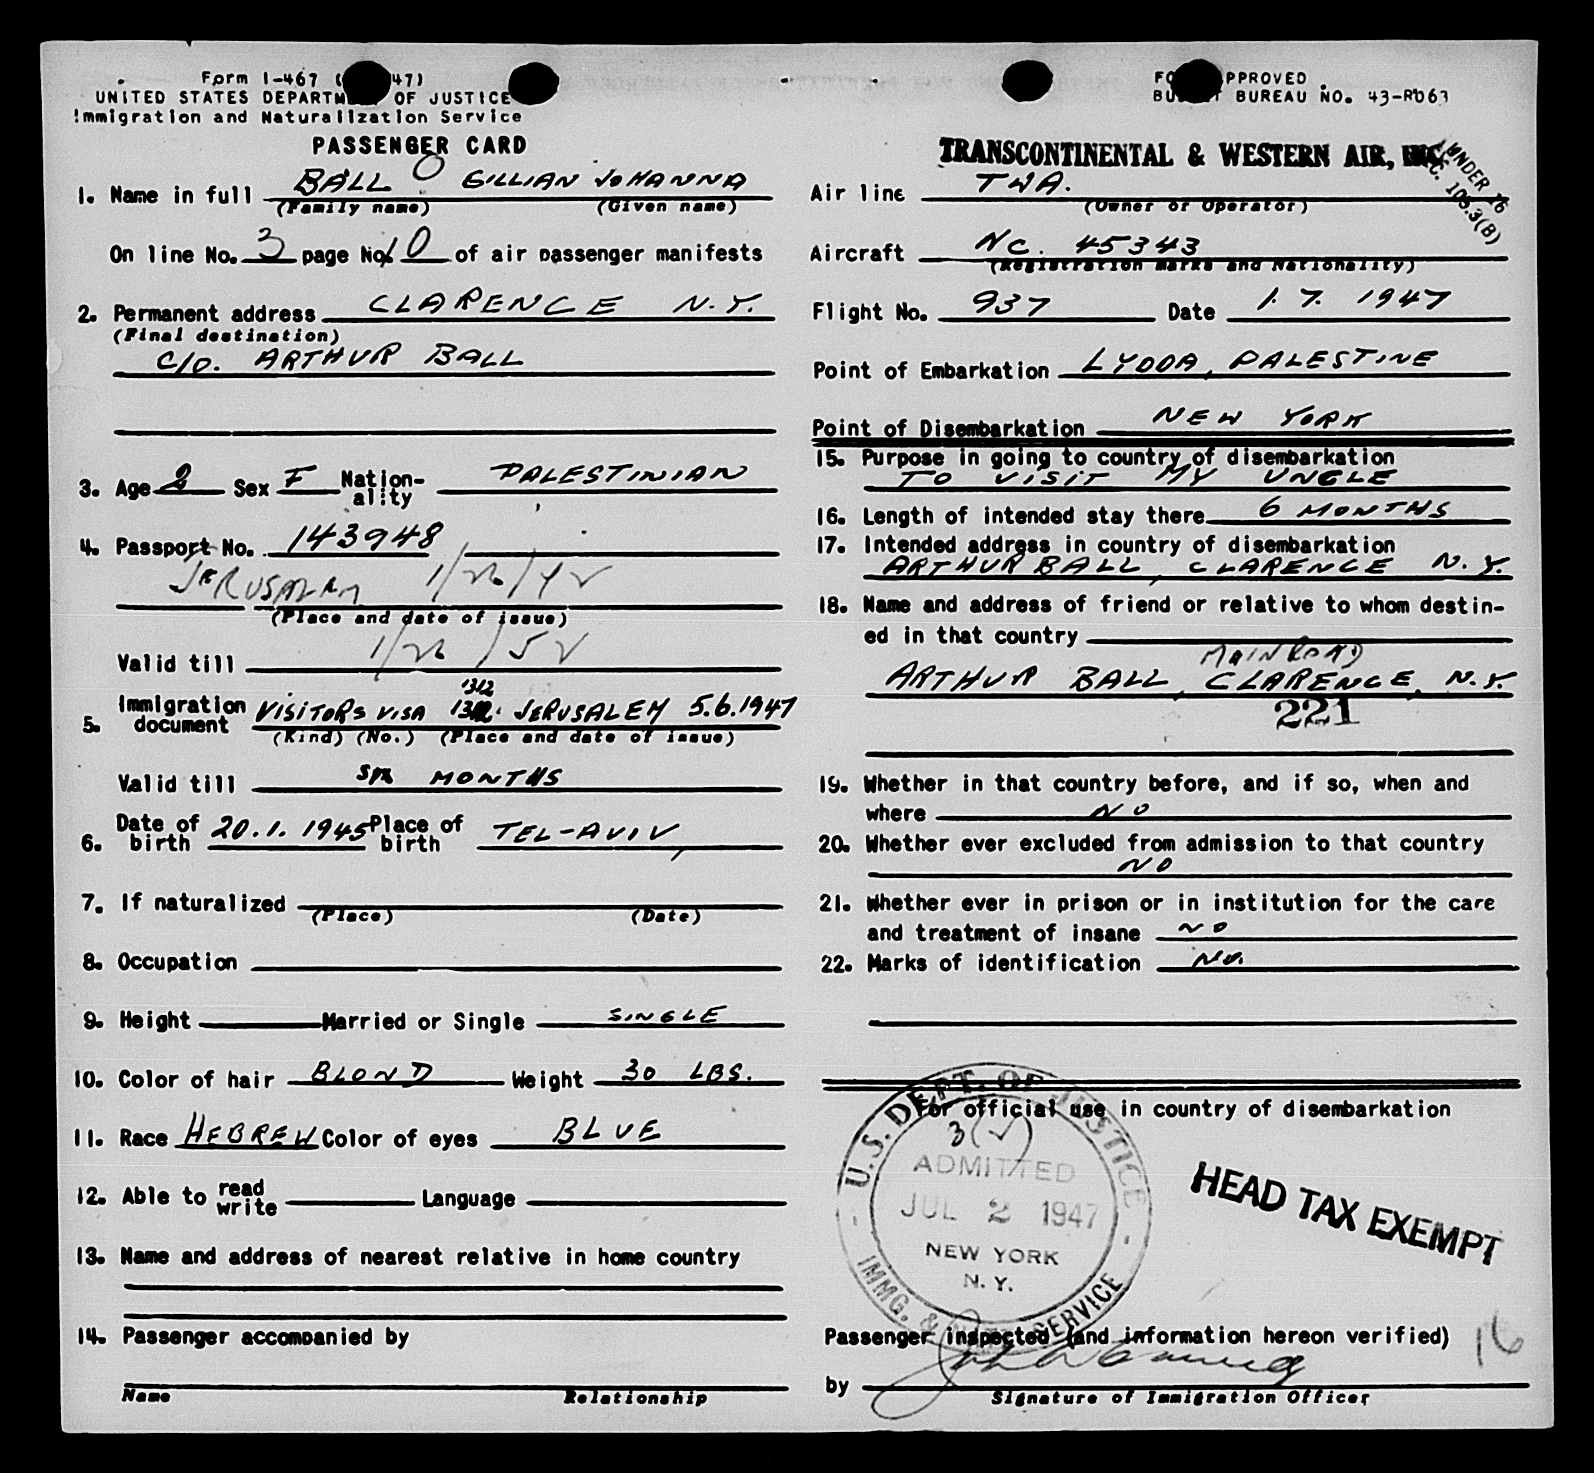 Form I-467 ( 47)
UNITED STATES DEPARTM OF JUSTICE
Immigration and Naturalization Service
PASSENGER CARD
1. Name in full BALL O GILLIAN JOHANNA
(Family name) (Given name)
On line No. 3 page No. 10 of air passenger manifests
2. Permanent address CLARENCE N.Y.
(Final destination)
C/O. ARTHUR BALL
3. Age 2 Sex F Nation-ality PALESTINIAN
4. Passport No. 143948
JERUSALEM
(Place and date of issue)
Valid till
1312
5. Immigration document VISITORS VISA JERUSALEM 5.6.1947
(Kind) (No.) (Place and date of issue)
Valid till SIX MONTHS
6. Date of birth 20.1.1945 Place of birth TEL-AVIV,
7. If naturalized
(Place) (Date)
8. Occupation
9. Height Married or Single SINGLE
10. Color of hair BLOND Weight 30 LBS.
11. Race HEBREW Color of eyes BLUE
12. Able to read write Language
13. Name and address of nearest relative in home country
14. Passenger accompanied by
Name Relationship
FO PPROVED
BU T BUREAU NO. 43-R063
TRANSCONTINENTAL & WESTERN AIR, INC.
UNDER 16
SEC. 105.3(B)
Air line TWA.
(Owner or Operator)
Aircraft NC. 45343
(Registration marks and Nationality)
Flight No. 937 Date 1.7.1947
Point of Embarkation LYDDA, PALESTINE
Point of Disembarkation NEW YORK
15. Purpose in going to country of disembarkation
TO VISIT MY UNCLE
16. Length of intended stay there 6 MONTHS
17. Intended address in country of disembarkation
ARTHUR BALL, CLARENCE N.Y.
18. Name and address of friend or relative to whom destin-
ed in that country
MAIN ROAD
ARTHUR BALL, CLARENCE, N.Y.
221
19. Whether in that country before, and if so, when and
where NO
20. Whether ever excluded from admission to that country
NO
21. Whether ever in prison or in institution for the care
and treatment of insane NO
22. Marks of identification NO.
For official use in country of disembarkation
3(
U.S. DEPT. OF JUSTICE
ADMITTED
JUL 2 1947
NEW YORK
N.Y.
IMMG. & NATZ. SERVICE
HEAD TAX EXEMPT
Passenger inspected (and information hereon verified) 16
by
Signature of Immigration Officer